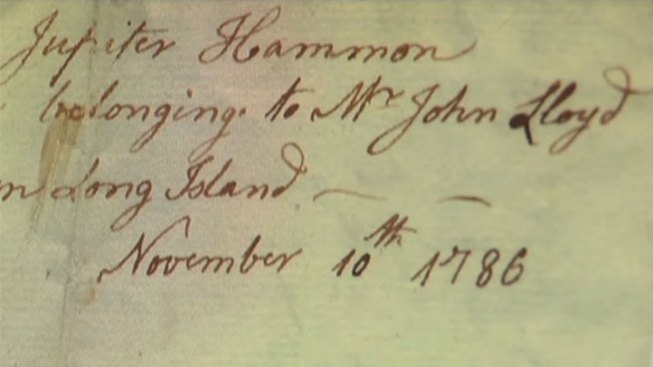 Jupiter Hammon
belonging to Mr John Lloyd
on Long Island
November 10th 1786